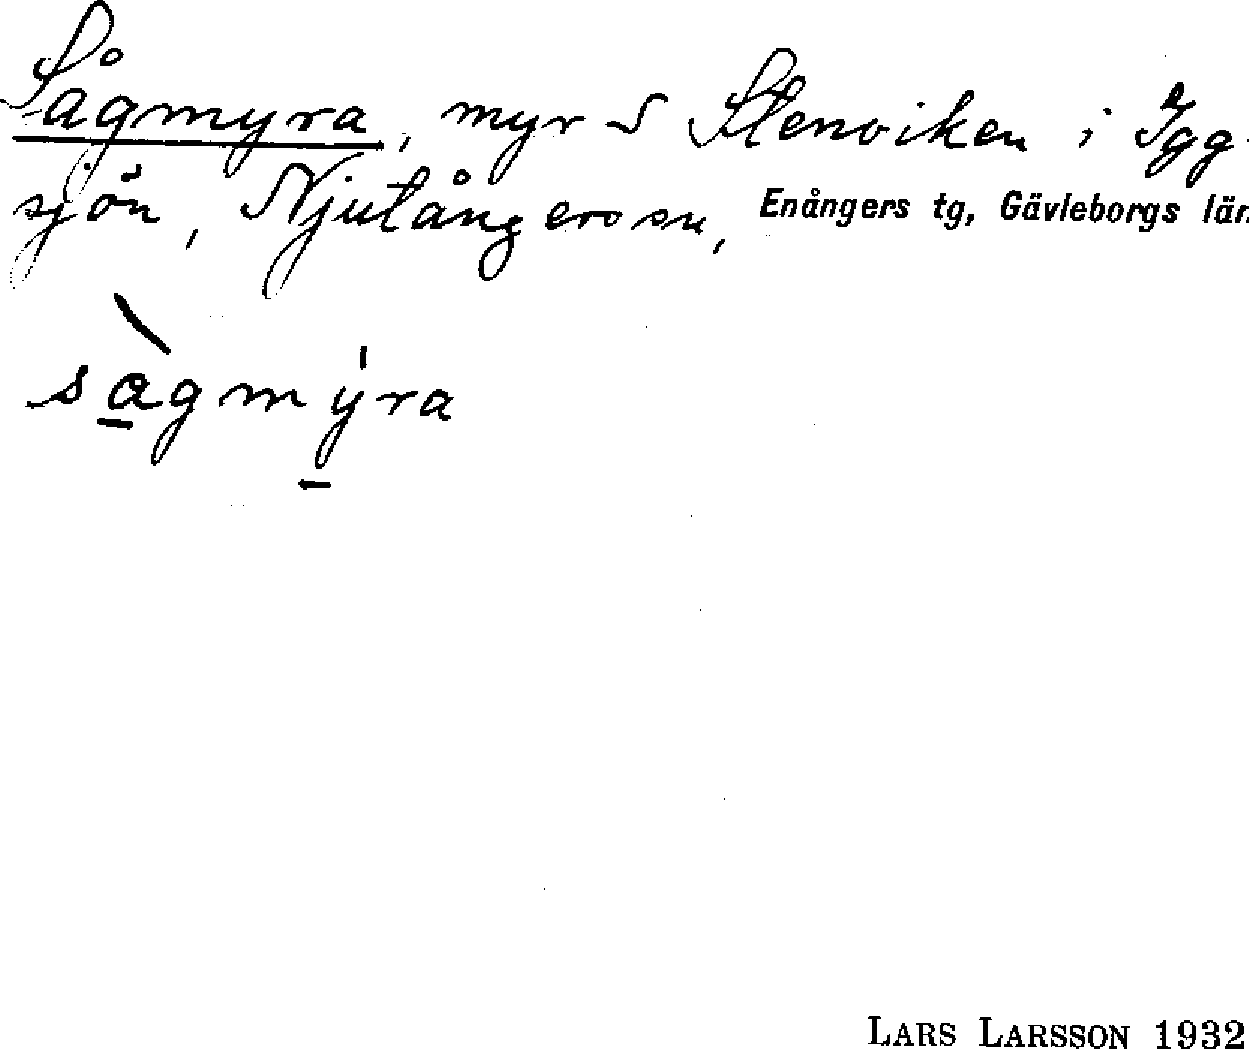 Sågmyra, myr S Stenviken i Igg-
sjön, Njutångers sn, Enångers tg, Gävleborgs län
sàgmýra
LARS LARSSON 1932